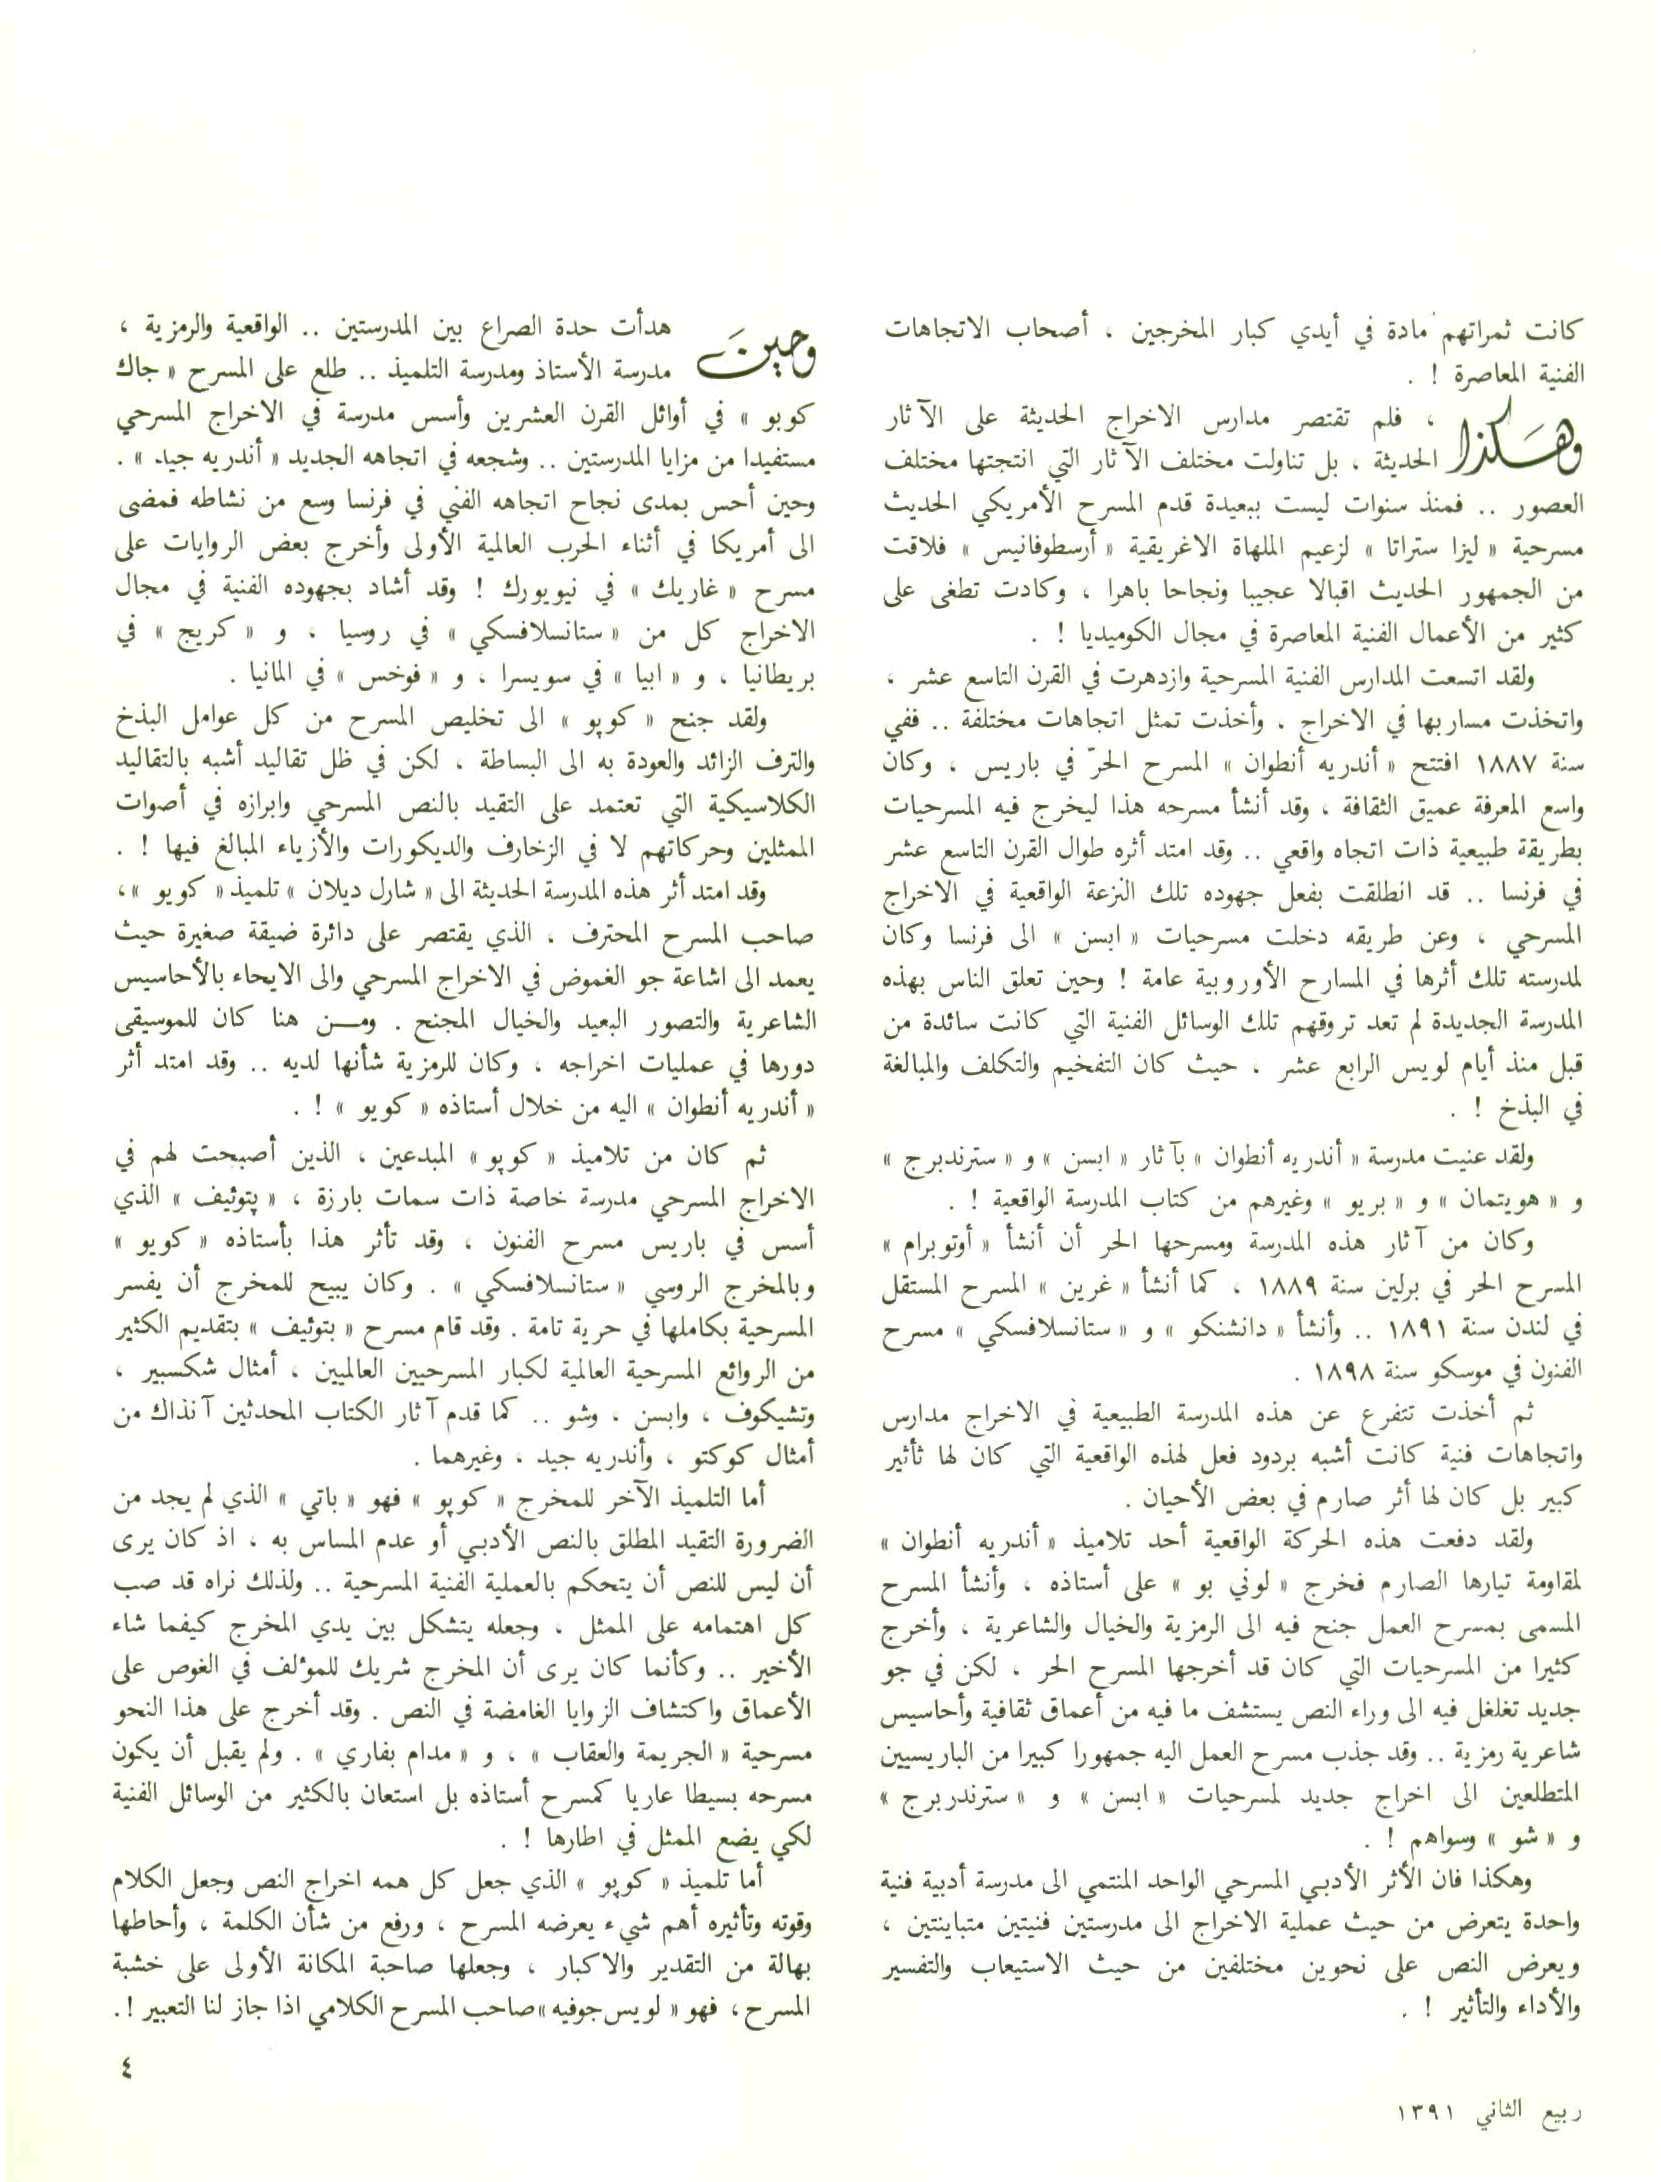 كانت ثمراتهم مادة في أيدي كبار المخرجين ، أصحاب الاتجاهات
الفنية المعاصرة ! .
وهكذا ، فلم تقتصر مدارس الاخراج الحديثة على الآثار
الحديثة ، بل تناولت مختلف الآثار التي انتجتها مختلف
العصور .. فمنذ سنوات ليست ببعيدة قدم المسرح الأمريكي الحديث
مسرحية « ليزا ستراتا » لزعيم الملهاة الاغريقية « أرسطوفانيس » فلاقت
من الجمهور الحديث اقبالا عجيبا ونجاحا باهرا ، وكادت تطغى على
كثير من الأعمال الفنية المعاصرة في مجال الكوميديا ! .
ولقد اتسعت المدارس الفنية المسرحية وازدهرت في القرن التاسع عشر ،
واتخذت مساربها في الاخراج ، وأخذت تمثل اتجاهات مختلفة .. ففي
سنة ١٨٨٧ افتتح « أندريه أنطوان » المسرح الحرّ في باريس ، وكان
واسع المعرفة عميق الثقافة ، وقد أنشأ مسرحه هذا ليخرج فيه المسرحيات
بطريقة طبيعية ذات اتجاه واقعي .. وقد امتد أثره طوال القرن التاسع عشر
في فرنسا .. قد انطلقت بفعل جهوده تلك النزعة الواقعية في الاخراج
المسرحي ، وعن طريقه دخلت مسرحيات « ابسن » الى فرنسا وكان
لمدرسته تلك أثرها في المسارح الأوروبية عامة ! وحين تعلق الناس بهذه
المدرسة الجديدة لم تعد تروقهم تلك الوسائل الفنية التي كانت سائدة من
قبل منذ أيام لويس الرابع عشر ، حيث كان التفخيم والتكلف والمبالغة
في البذخ ! .
ولقد عنيت مدرسة « أندريه أنطوان » بآثار « ابسن » و « سترندبرج »
و « هويتمان » و « بريو » وغيرهم من كتاب المدرسة الواقعية ! .
وكان من آثار هذه المدرسة ومسرحها الحر أن أنشأ « أوتوبرام »
المسرح الحر في برلين سنة ١٨٨٩ ، كما أنشأ « غرين » المسرح المستقل
في لندن سنة ١٨٩١ .. وأنشأ « دانشنكو » و « ستانسلافسكي » مسرح
الفنون في موسكو سنة ١٨٩٨ .
ثم أخذت تتفرع عن هذه المدرسة الطبيعية في الاخراج مدارس
واتجاهات فنية كانت أشبه بردود فعل لهذه الواقعية التي كان لها ثأثير
كبير بل كان لها أثر صارم في بعض الأحيان .
ولقد دفعت هذه الحركة الواقعية أحد تلاميذ « أندريه أنطوان »
لمقاومة تيارها الصارم فخرج « لوني بو » على أستاذه ، وأنشأ المسرح
المسمى بمسرح العمل جنح فيه الى الرمزية والخيال والشاعرية ، وأخرج
كثيرا من المسرحيات التي كان قد أخرجها المسرح الحر ، لكن في جو
جديد تغلغل فيه الى وراء النص يستشف ما فيه من أعماق ثقافية وأحاسيس
شاعرية رمزية .. وقد جذب مسرح العمل اليه جمهورا كبيرا من الباريسيين
المتطلعين الى اخراج جديد لمسرحيات « ابسن » و « سترندربرج »
و « شو » وسواهم ! .
وهكذا فان الأثر الأدبي المسرحي الواحد المنتمي الى مدرسة أدبية فنية
واحدة يتعرض من حيث عملية الاخراج الى مدرستين فنيتين متباينتين ،
ويعرض النص على نحوين مختلفين من حيث الاستيعاب والتفسير
والأداء والتأثير ! .
وحين هدأت حدة الصراع بين المدرستين .. الواقعية والرمزية ،
مدرسة الأستاذ ومدرسة التلميذ .. طلع على المسرح « جاك
كوبو » في أوائل القرن العشرين وأسس مدرسة في الاخراج المسرحي
مستفيدا من مزايا المدرستين .. وشجعه في اتجاهه الجديد « أندريه جيد » .
وحين أحس بمدى نجاح اتجاهه الفني في فرنسا وسع من نشاطه فمضى
الى أمريكا في أثناء الحرب العالمية الأولى وأخرج بعض الروايات على
مسرح « غاريك » في نيويورك ! وقد أشاد بجهوده الفنية في مجال
الاخراج كل من « ستانسلافسكي » في روسيا ، و « كريج » في
بريطانيا ، و « ابيا » في سويسرا ، و « فوخس » في المانيا .
ولقد جنح « كوپو » الى تخليص المسرح من كل عوامل البذخ
والترف الزائد والعودة به الى البساطة ، لكن في ظل تقاليد أشبه بالتقاليد
الكلاسيكية التي تعتمد على التقيد بالنص المسرحي وابرازه في أصوات
الممثلين وحركاتهم لا في الزخارف والديكورات والأزياء المبالغ فيها ! .
وقد امتد أثر هذه المدرسة الحديثة الى « شارل ديلان » تلميذ « كوبو » ،
صاحب المسرح المحترف ، الذي يقتصر على دائرة ضيقة صغيرة حيث
يعمد الى اشاعة جو الغموض في الاخراج المسرحي والى الايحاء بالأحاسيس
الشاعرية والتصور البعيد والخيال المجنح . ومـــن هنا كان للموسيقى
دورها في عمليات اخراجه ، وكان للرمزية شأنها لديه .. وقد امتد أثر
« أندريه أنطوان » اليه من خلال أستاذه « كوبو » ! .
ثم كان من تلاميذ « كوپو » المبدعين ، الذين أصبحت لهم في
الاخراج المسرحي مدرسة خاصة ذات سمات بارزة ، « پتوئيف » الذي
أسس في باريس مسرح الفنون ، وقد تأثر هذا بأستاذه « كوبو »
وبالمخرج الروسي « ستانسلافسكي » . وكان يبيح للمخرج أن يفسر
المسرحية بكاملها في حرية تامة . وقد قام مسرح « بتوئيف » بتقديم الكثير
من الروائع المسرحية العالمية لكبار المسرحيين العالميين ، أمثال شكسبير ،
وتشيكوف ، وابسن ، وشو .. كما قدم آثار الكتاب المحدثين آنذاك من
أمثال كوكتو ، وأندريه جيد ، وغيرهما .
أما التلميذ الآخر للمخرج « كوپو » فهو « باتي » الذي لم يجد من
الضرورة التقيد المطلق بالنص الأدبي أو عدم المساس به ، اذ كان يرى
أن ليس للنص أن يتحكم بالعملية الفنية المسرحية .. ولذلك نراه قد صب
كل اهتمامه على الممثل ، وجعله يتشكل بين يدي المخرج كيفما شاء
الأخير .. وكأنما كان يرى أن المخرج شريك للمؤلف في الغوص على
الأعماق واكتشاف الزوايا الغامضة في النص . وقد أخرج على هذا النحو
مسرحية « الجريمة والعقاب » ، و « مدام بفاري » . ولم يقبل أن يكون
مسرحه بسيطا عاريا كمسرح أستاذه بل استعان بالكثير من الوسائل الفنية
لكي يضع الممثل في اطارها ! .
أما تلميذ « كوپو » الذي جعل كل همه اخراج النص وجعل الكلام
وقوته وتأثيره أهم شيء يعرضه المسرح ، ورفع من شأن الكلمة ، وأحاطها
بهالة من التقدير والاكبار ، وجعلها صاحبة المكانة الأولى على خشبة
المسرح ، فهو « لويس جوفيه » صاحب المسرح الكلامي اذا جاز لنا التعبير ! .
٤
ربيع الثاني ١٣٩١